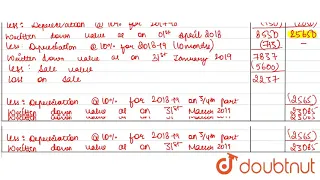 less: Depreciation @ 10% for 2017-18
Written down value as on 01st April 2018 8550 25650
less Depreciation @ 10% for 2018-19 (10 months) (713) -
Written down value as on 31st January 2019 7837
less: Sale value (5600)
loss on sale 2237
less: Depreciation @ 10% for 2018-19 on 3/4th part (2565)
Written down value as on 31st March 2019 23085
less: Depreciation @ 10% for 2018-19 on 3/4th part (2565)
Written down value as on 31st March 2019 23085
doubtnut